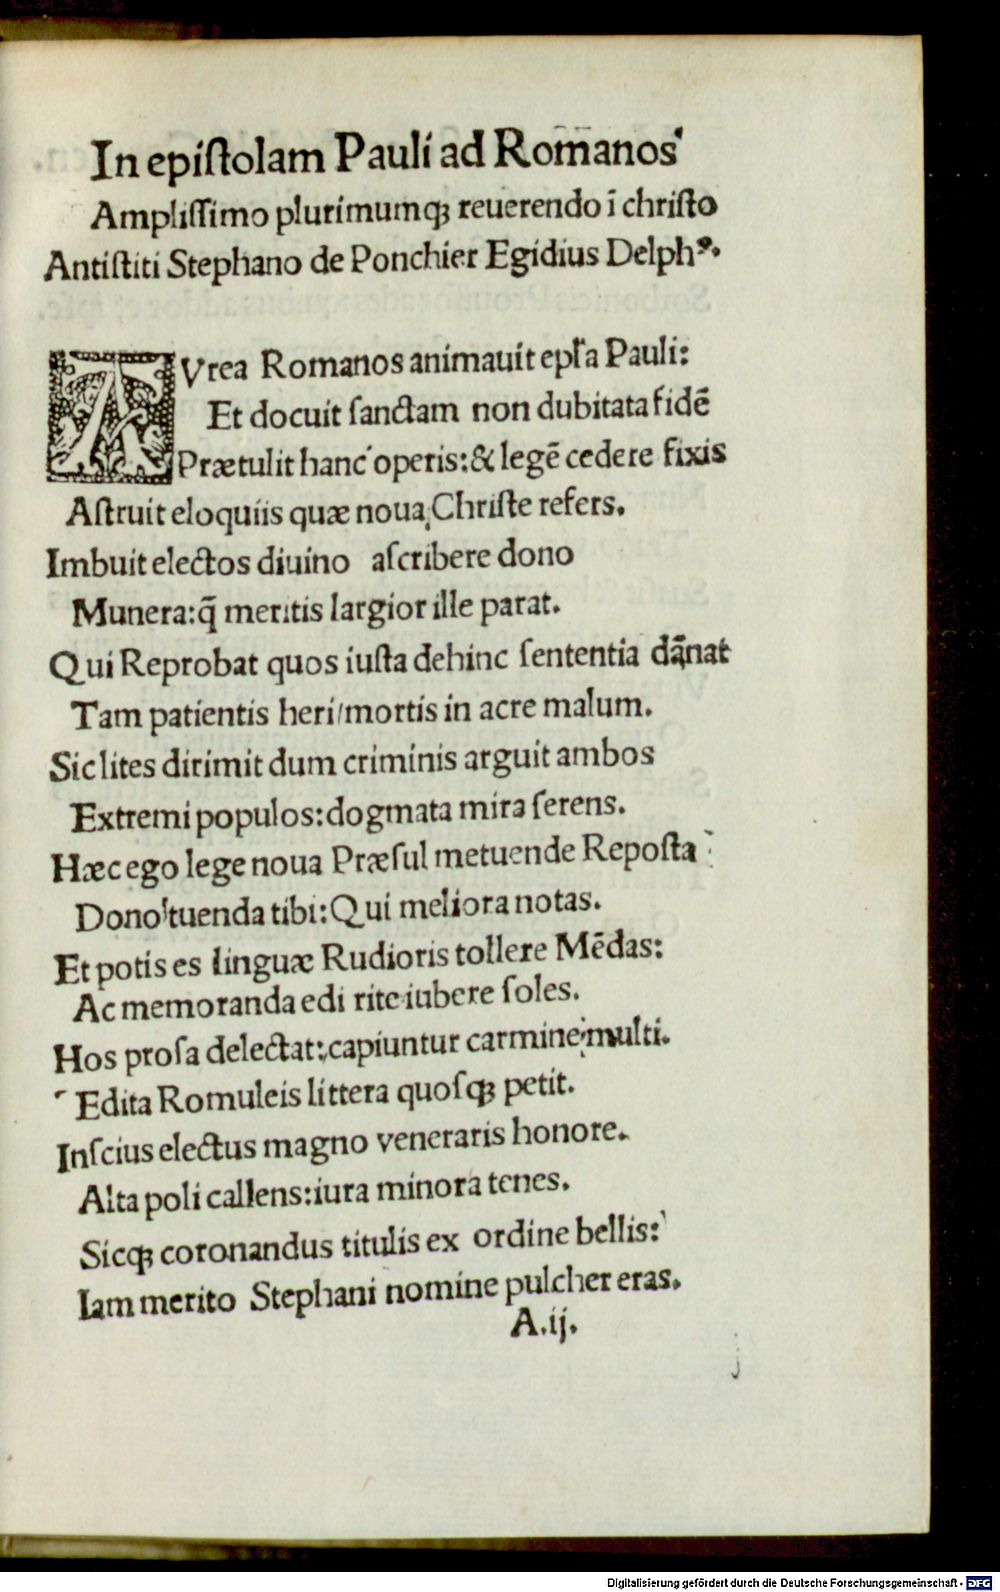 In epiſtolam Pauli ad Romanos
Ampliſſimo plurimumqꝫ reuerendo ī chriſto
Antiſtiti Stephano de Ponchier Egidius Delphꝰ.
AVrea Romanos animauit epl'a Pauli:
Et docuit ſanctam non dubitata fidē
Prætulit hanc operis: & legē cedere fixis
Aſtruit eloquiis quæ noua Chriſte refers.
Imbuit electos diuino aſcribere dono
Munera: q̄ meritis largior ille parat.
Qui Reprobat quos iuſta dehinc ſententia dānat
Tam patientis heri/mortis in acre malum.
Sic lites dirimit dum criminis arguit ambos
Extremi populos: dogmata mira ſerens.
Hæc ego lege noua Præſul metuende Repoſta
Dono tuenda tibi: Qui meliora notas.
Et potis es linguæ Rudioris tollere Mēdas:
Ac memoranda edi rite iubere ſoles.
Hos proſa delectat: capiuntur carmine multi.
Edita Romuleis littera quoſqꝫ petit.
Inſcius electus magno veneraris honore.
Alta poli callens: iura minora tenes.
Sicqꝫ coronandus titulis ex ordine bellis:
Iam merito Stephani nomine pulcher eras.
A.ij.
Digitalisierung gefördert durch die Deutsche Forschungsgemeinschaft - DFG